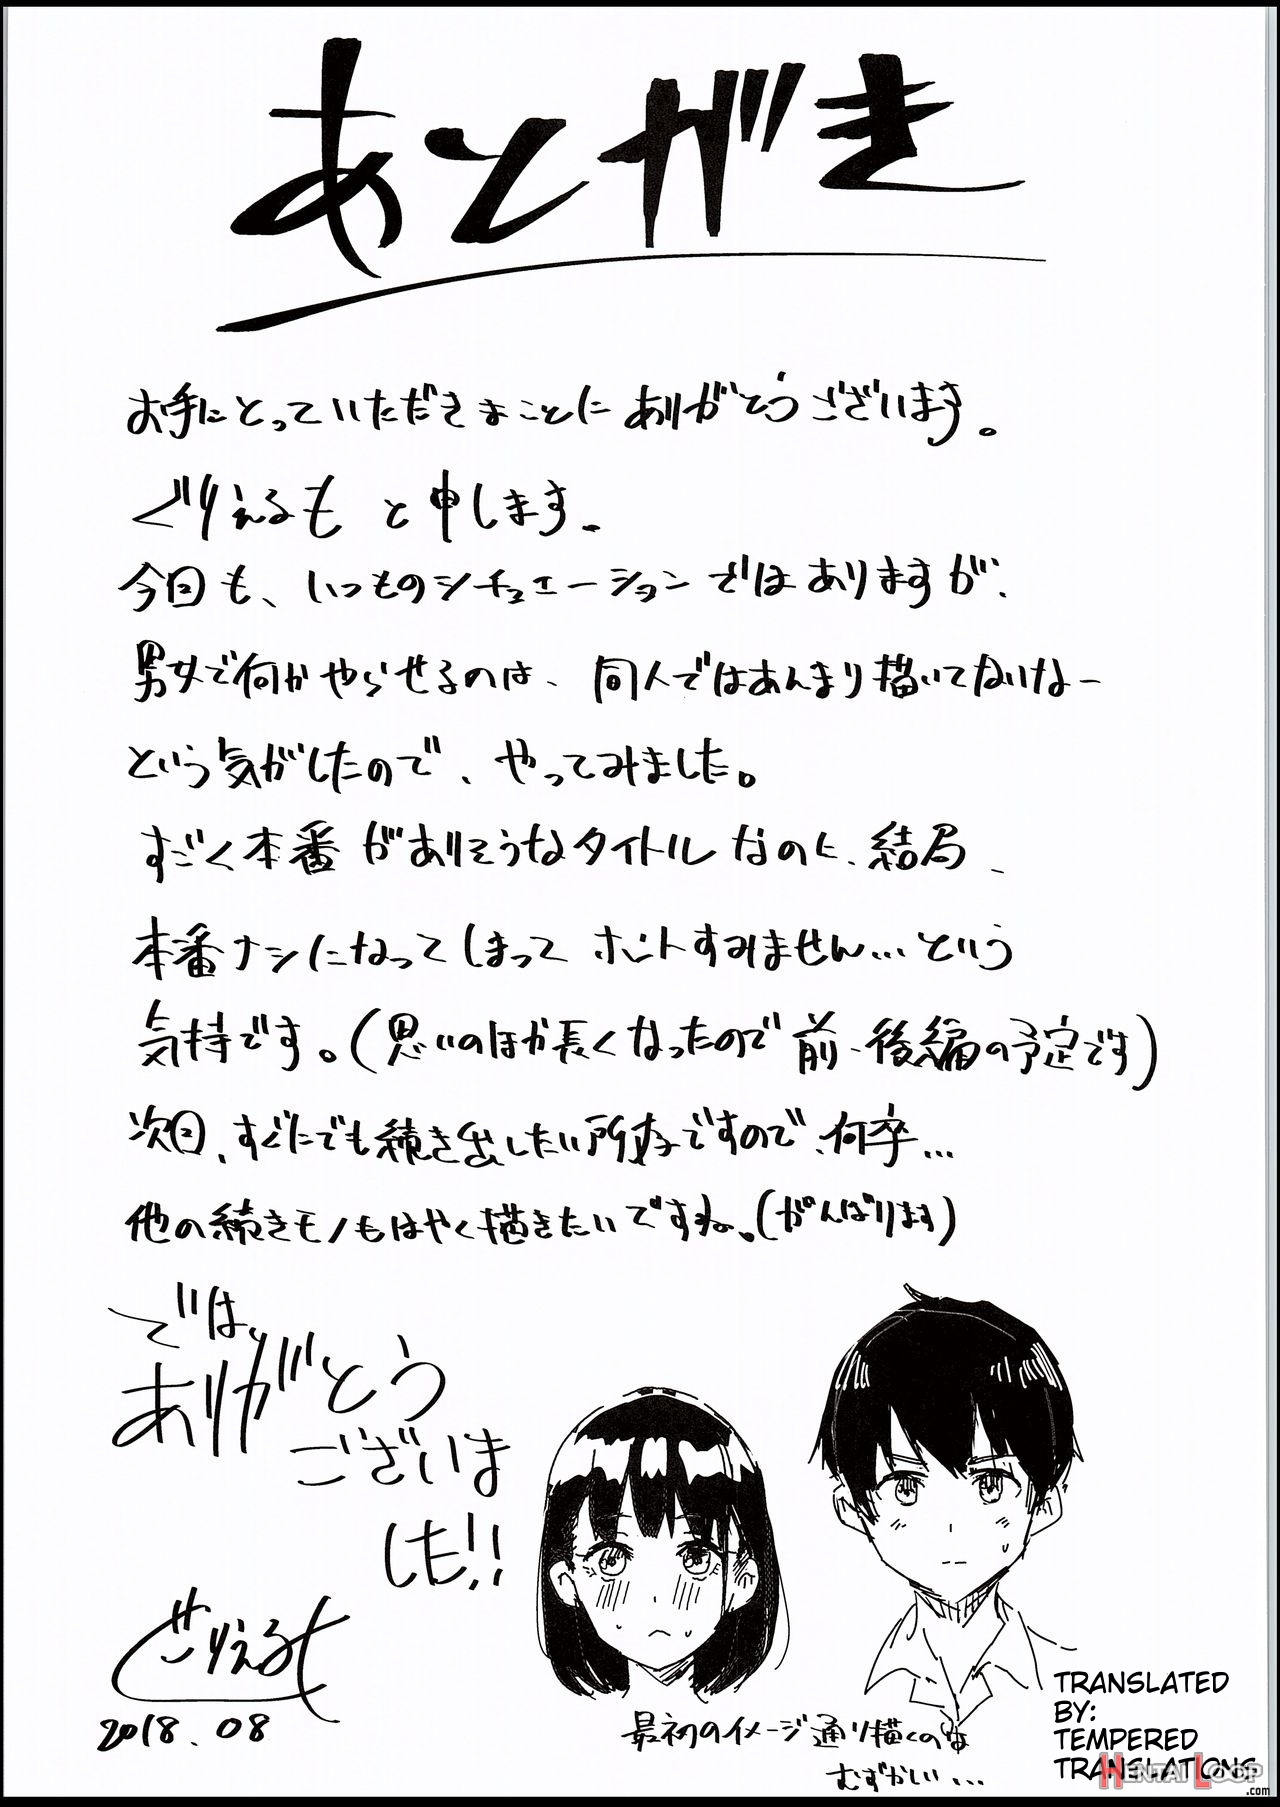 あとがき
お手にとっていただきまことにありがとうございます。
ぐりえるもと申します。
今回も、いつものシチュエーションではありますが、
男女で何かやらせるのは、同人ではあんまり描いてないなー
という気がしたので、やってみました。
すごく本番がありそうなタイトルなのに、結局、
本番ナシになってしまってホントすみません…という
気持です。(思いのほか長くなったので前・後編の予定です)
次回、すぐにでも続き出したい所存ですので、何卒…
他の続きモノもはやく描きたいですね。(がんばります)
では、
ありがとう
ございま
した!!
ぐりえるも
2018.08
最初のイメージ通り描くのは
むずかしい…
TRANSLATED
BY:
TEMPERED
TRANSLATIONS
HENTAI LOOP
.com